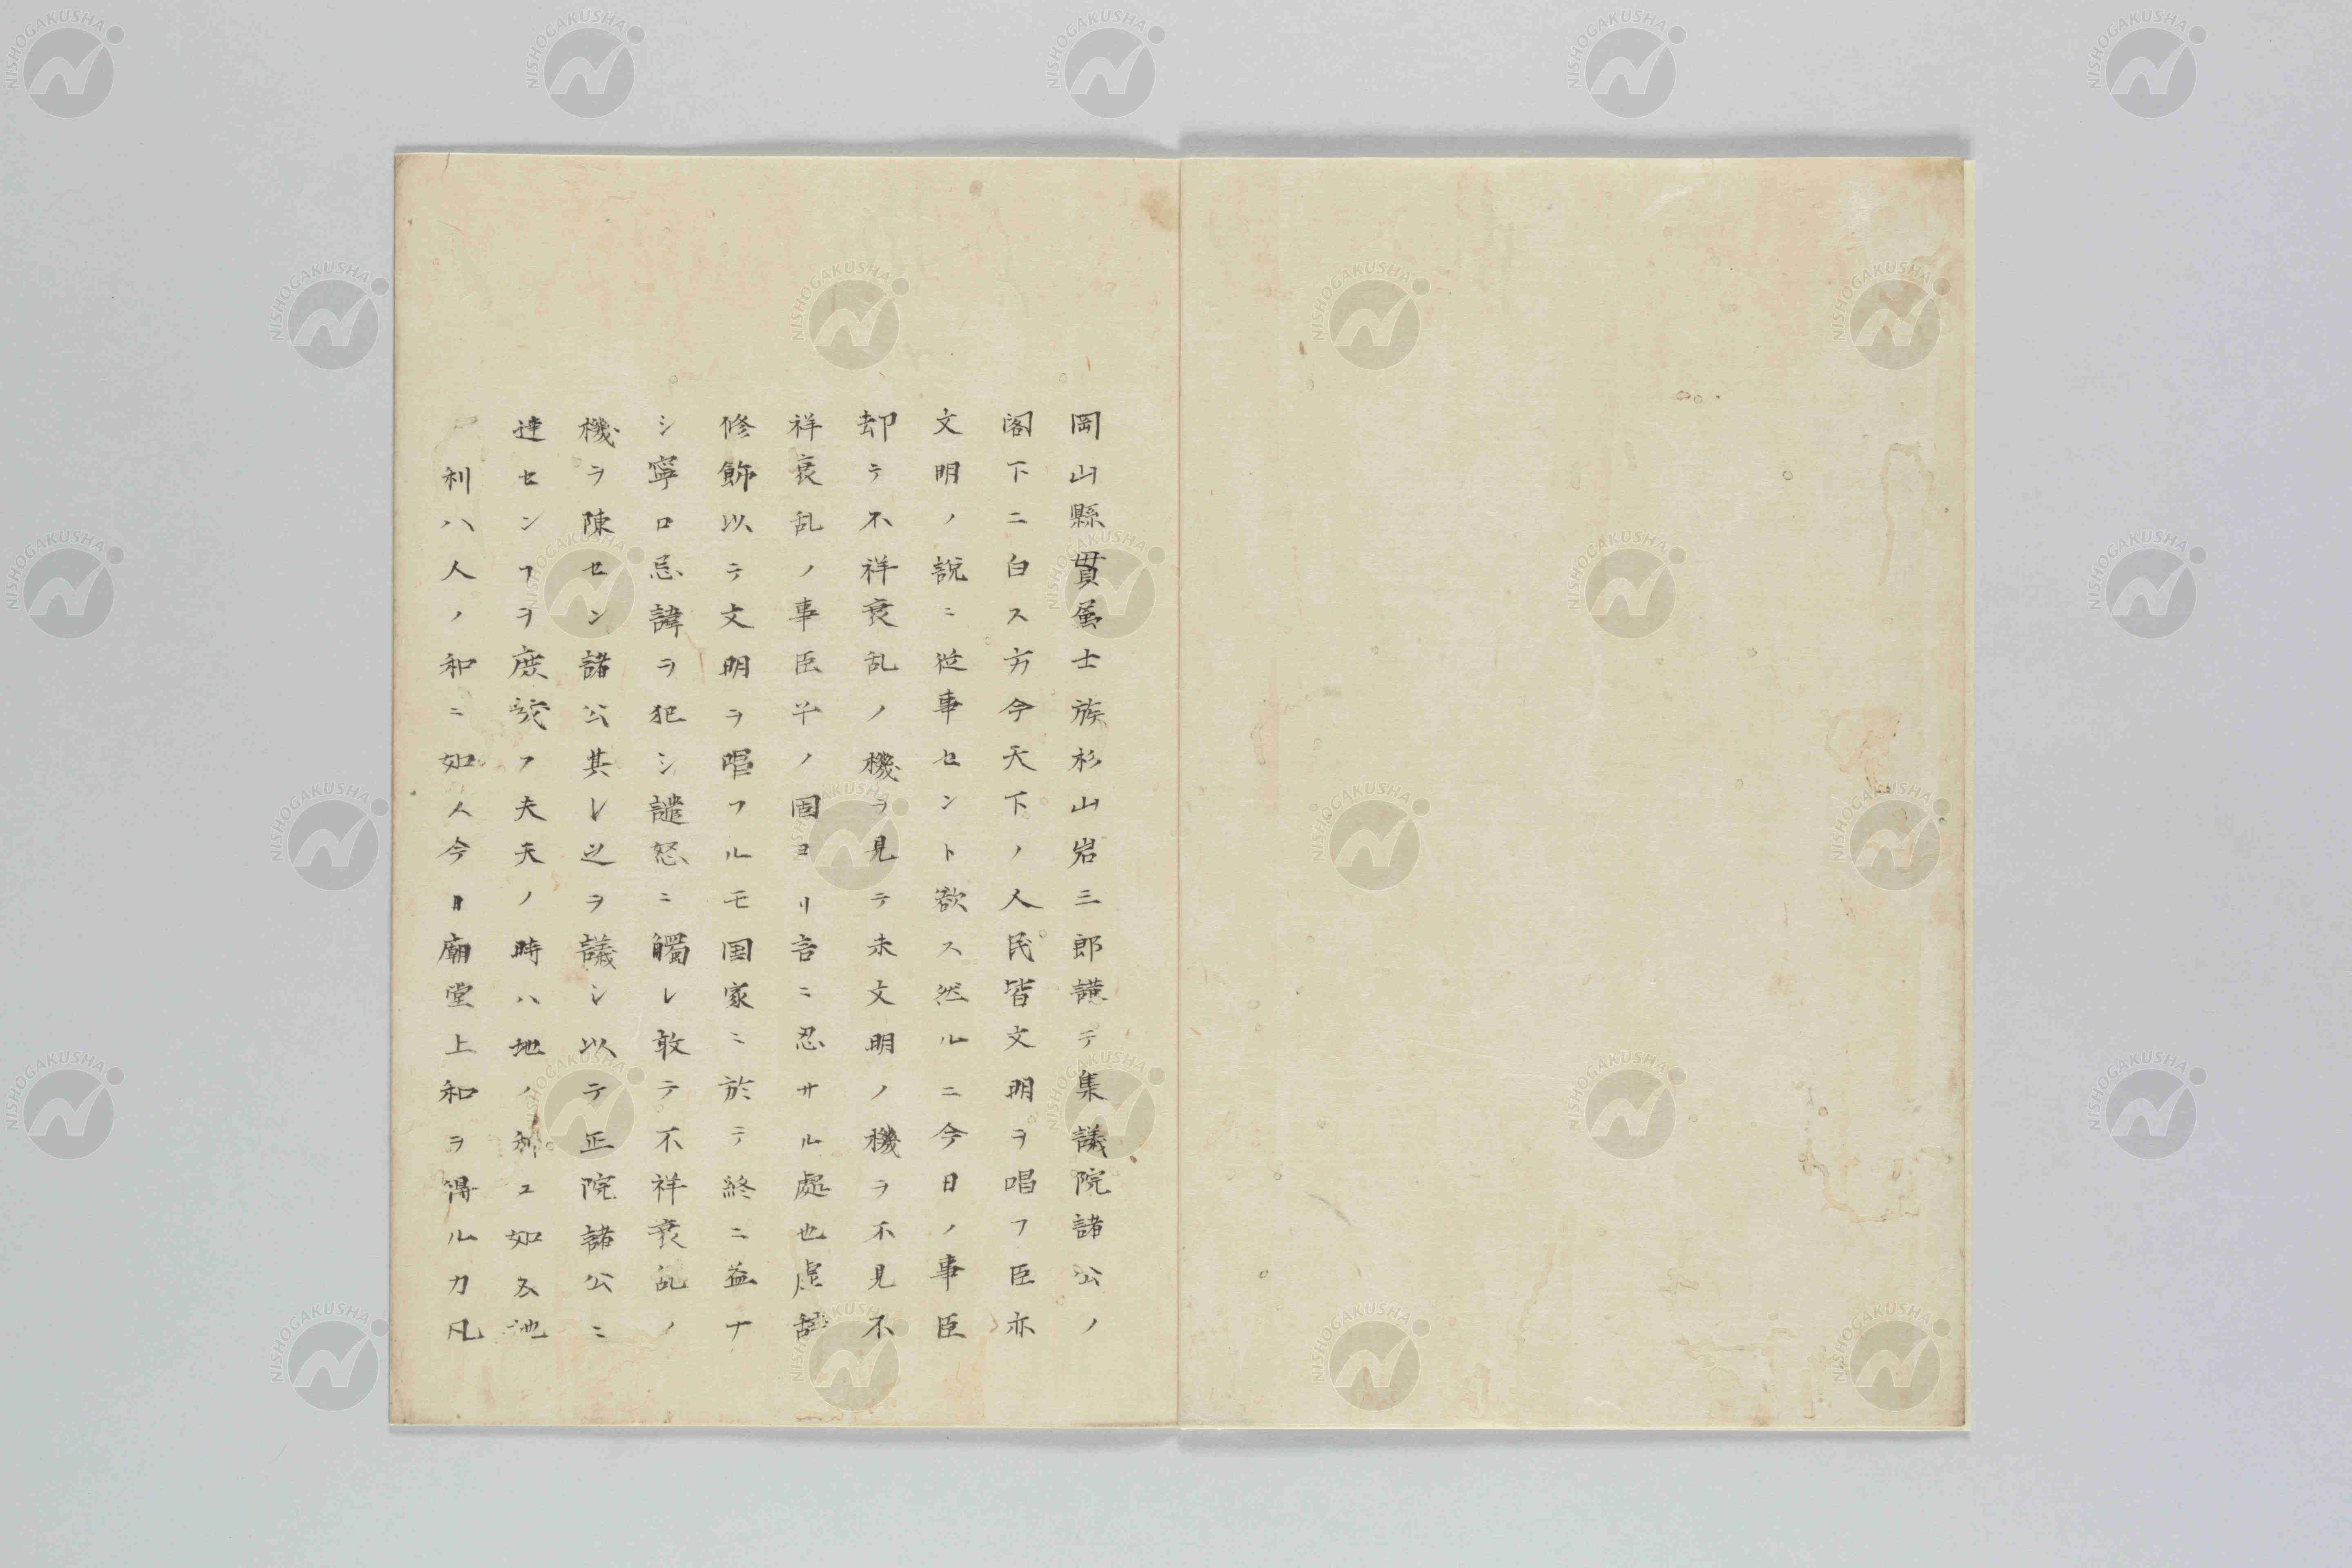 岡山縣貫属士族杉山岩三郎謹テ集議院諸公ノ
閣下ニ白ス方今天下ノ人民皆文明ヲ唱フ臣亦
文明ノ説ニ従事セント欲ス然ルニ今日ノ事臣
却テ不祥衰乱ノ機ヲ見テ未文明ノ機ヲ不見不
祥衰乱ノ事臣卒ノ固ヨリ言ニ忍サル處也虚辞
修飾以テ文明ヲ唱フルモ国家ニ於テ終ニ益ナ
シ寧ロ忌諱ヲ犯シ譴怒ニ觸レ敢テ不祥衰乱ノ
機ヲ陳セン諸公其レ之ヲ議シ以テ正院諸公ニ
達センヿヲ庶幾フ夫天ノ時ハ地ノ利ニ如ス地
ノ利ハ人ノ和ニ如ス今日廟堂上和ヲ得ルカ凡
NISHOGAKUSHA